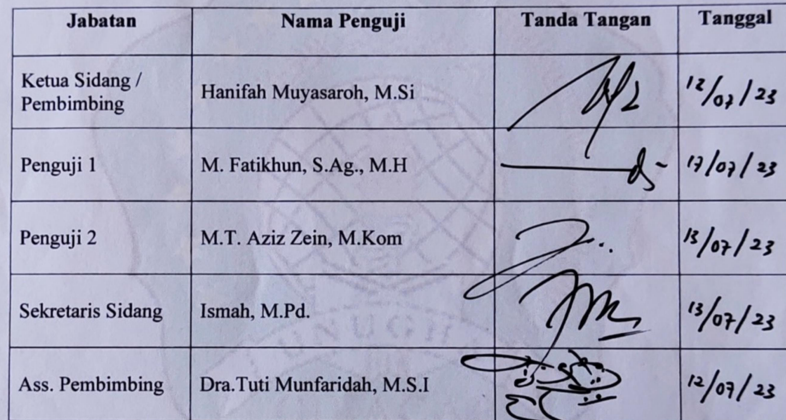 Jabatan Nama Penguji Tanda Tangan Tanggal
Ketua Sidang /
Pembimbing Hanifah Muyasaroh, M.Si 12/07/23
Penguji 1 M. Fatikhun, S.Ag., M.H 17/07/23
Penguji 2 M.T. Aziz Zein, M.Kom 13/07/23
Sekretaris Sidang Ismah, M.Pd. 13/07/23
Ass. Pembimbing Dra.Tuti Munfaridah, M.S.I 12/07/23
UNUGHA